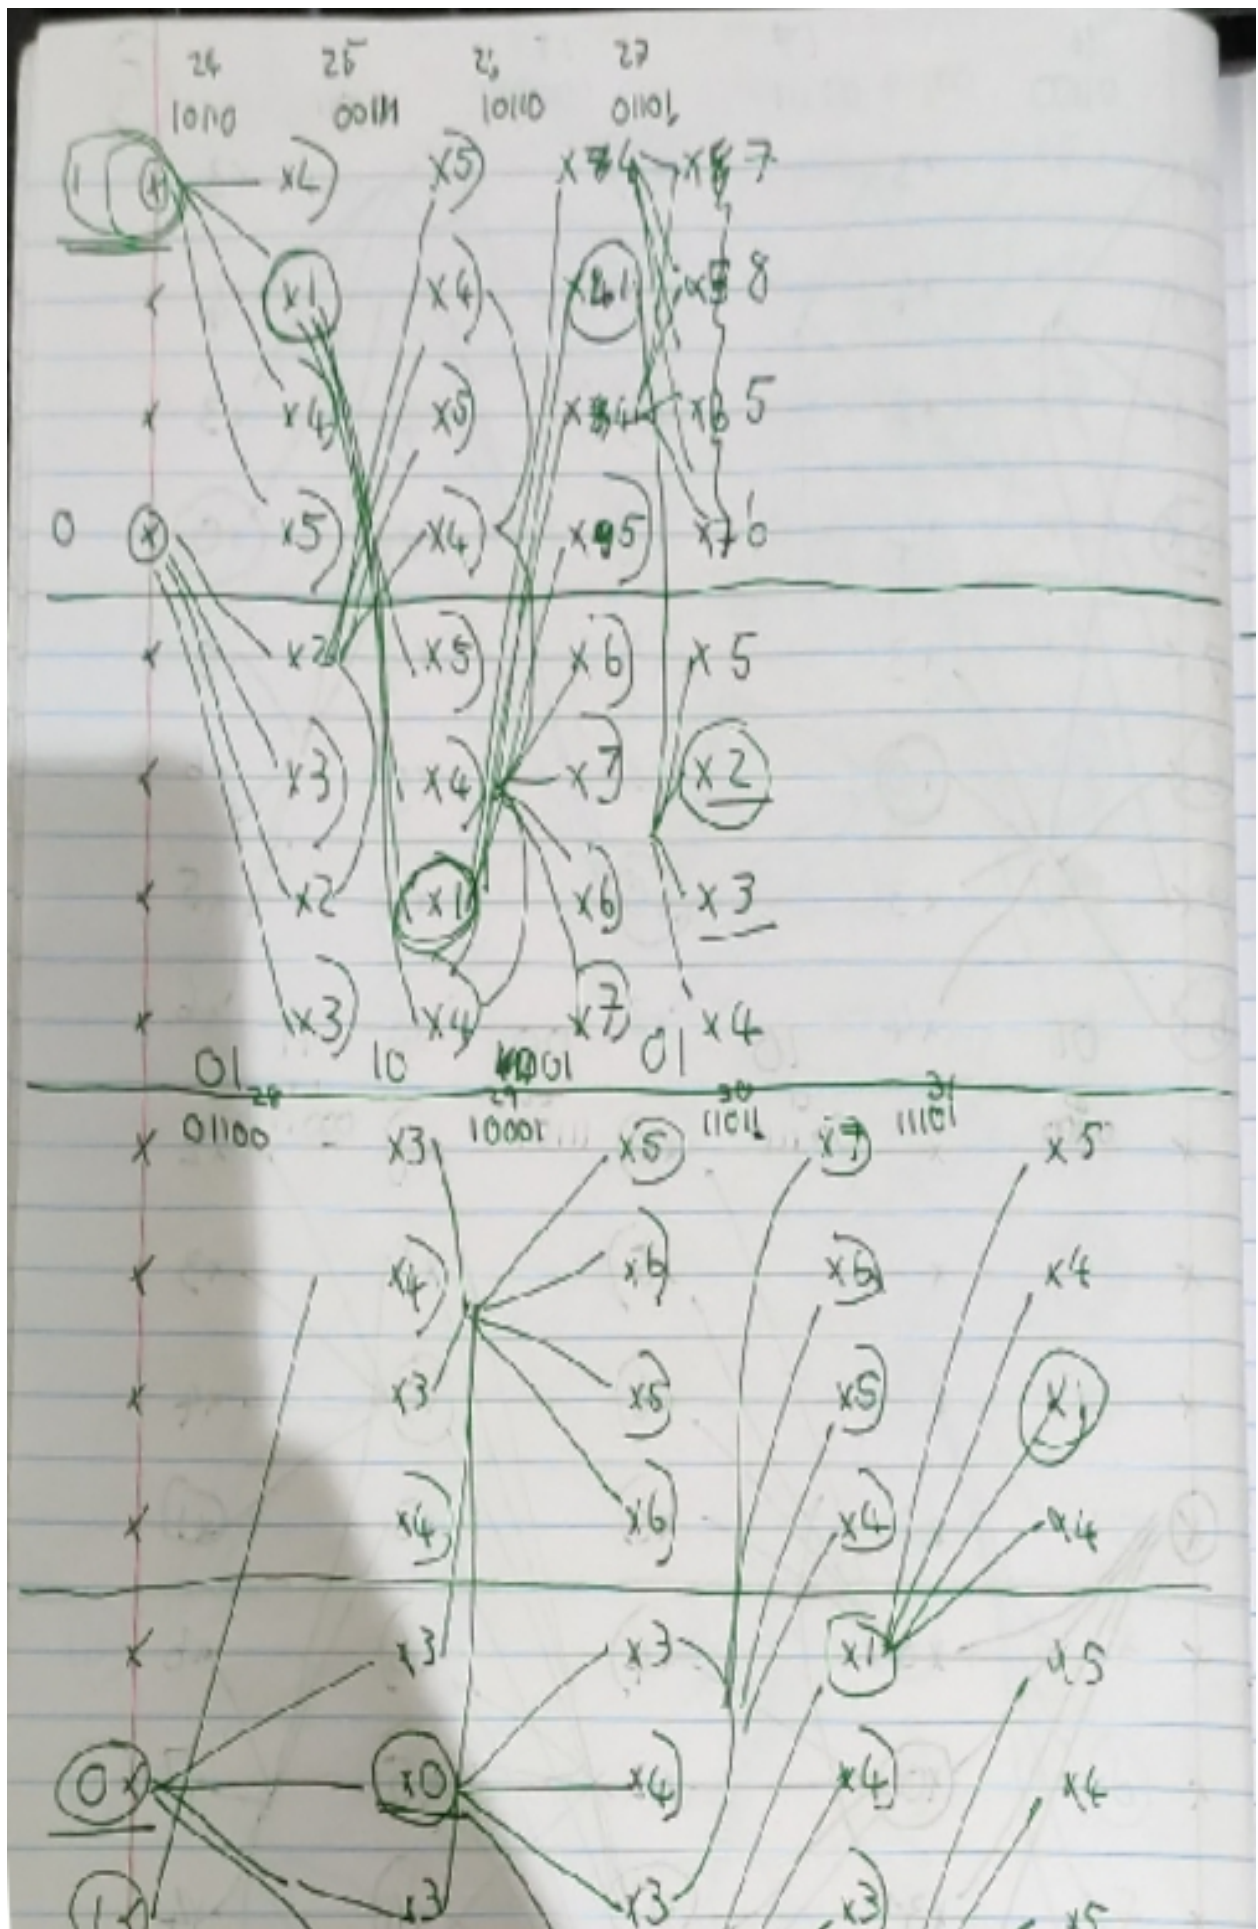 24 25 26 27
10110 00111 10110 01101
1 x x4) x5) x4 x 7
x x1 x4) x1 x 8
x x4) x5) x4 x 5
0 x x5) x4) x 5) x 6
x x2 x5) x6) x5
x x3) x4) x7) x2
x x2 x1 x6) x3
x x3) x4) x7) x4
01 10 01 01
28 29 30 31
x 01100 x3 10001 x5) 11011 x7) 11101 x5
x x4) x6) x6) x4
x x3 x5) x5) x1
x x4) x6) x4) x4
x x3 x3 x1 x5
0 x x0 x4) x4) x4
1 x x3 x3 x3) x5